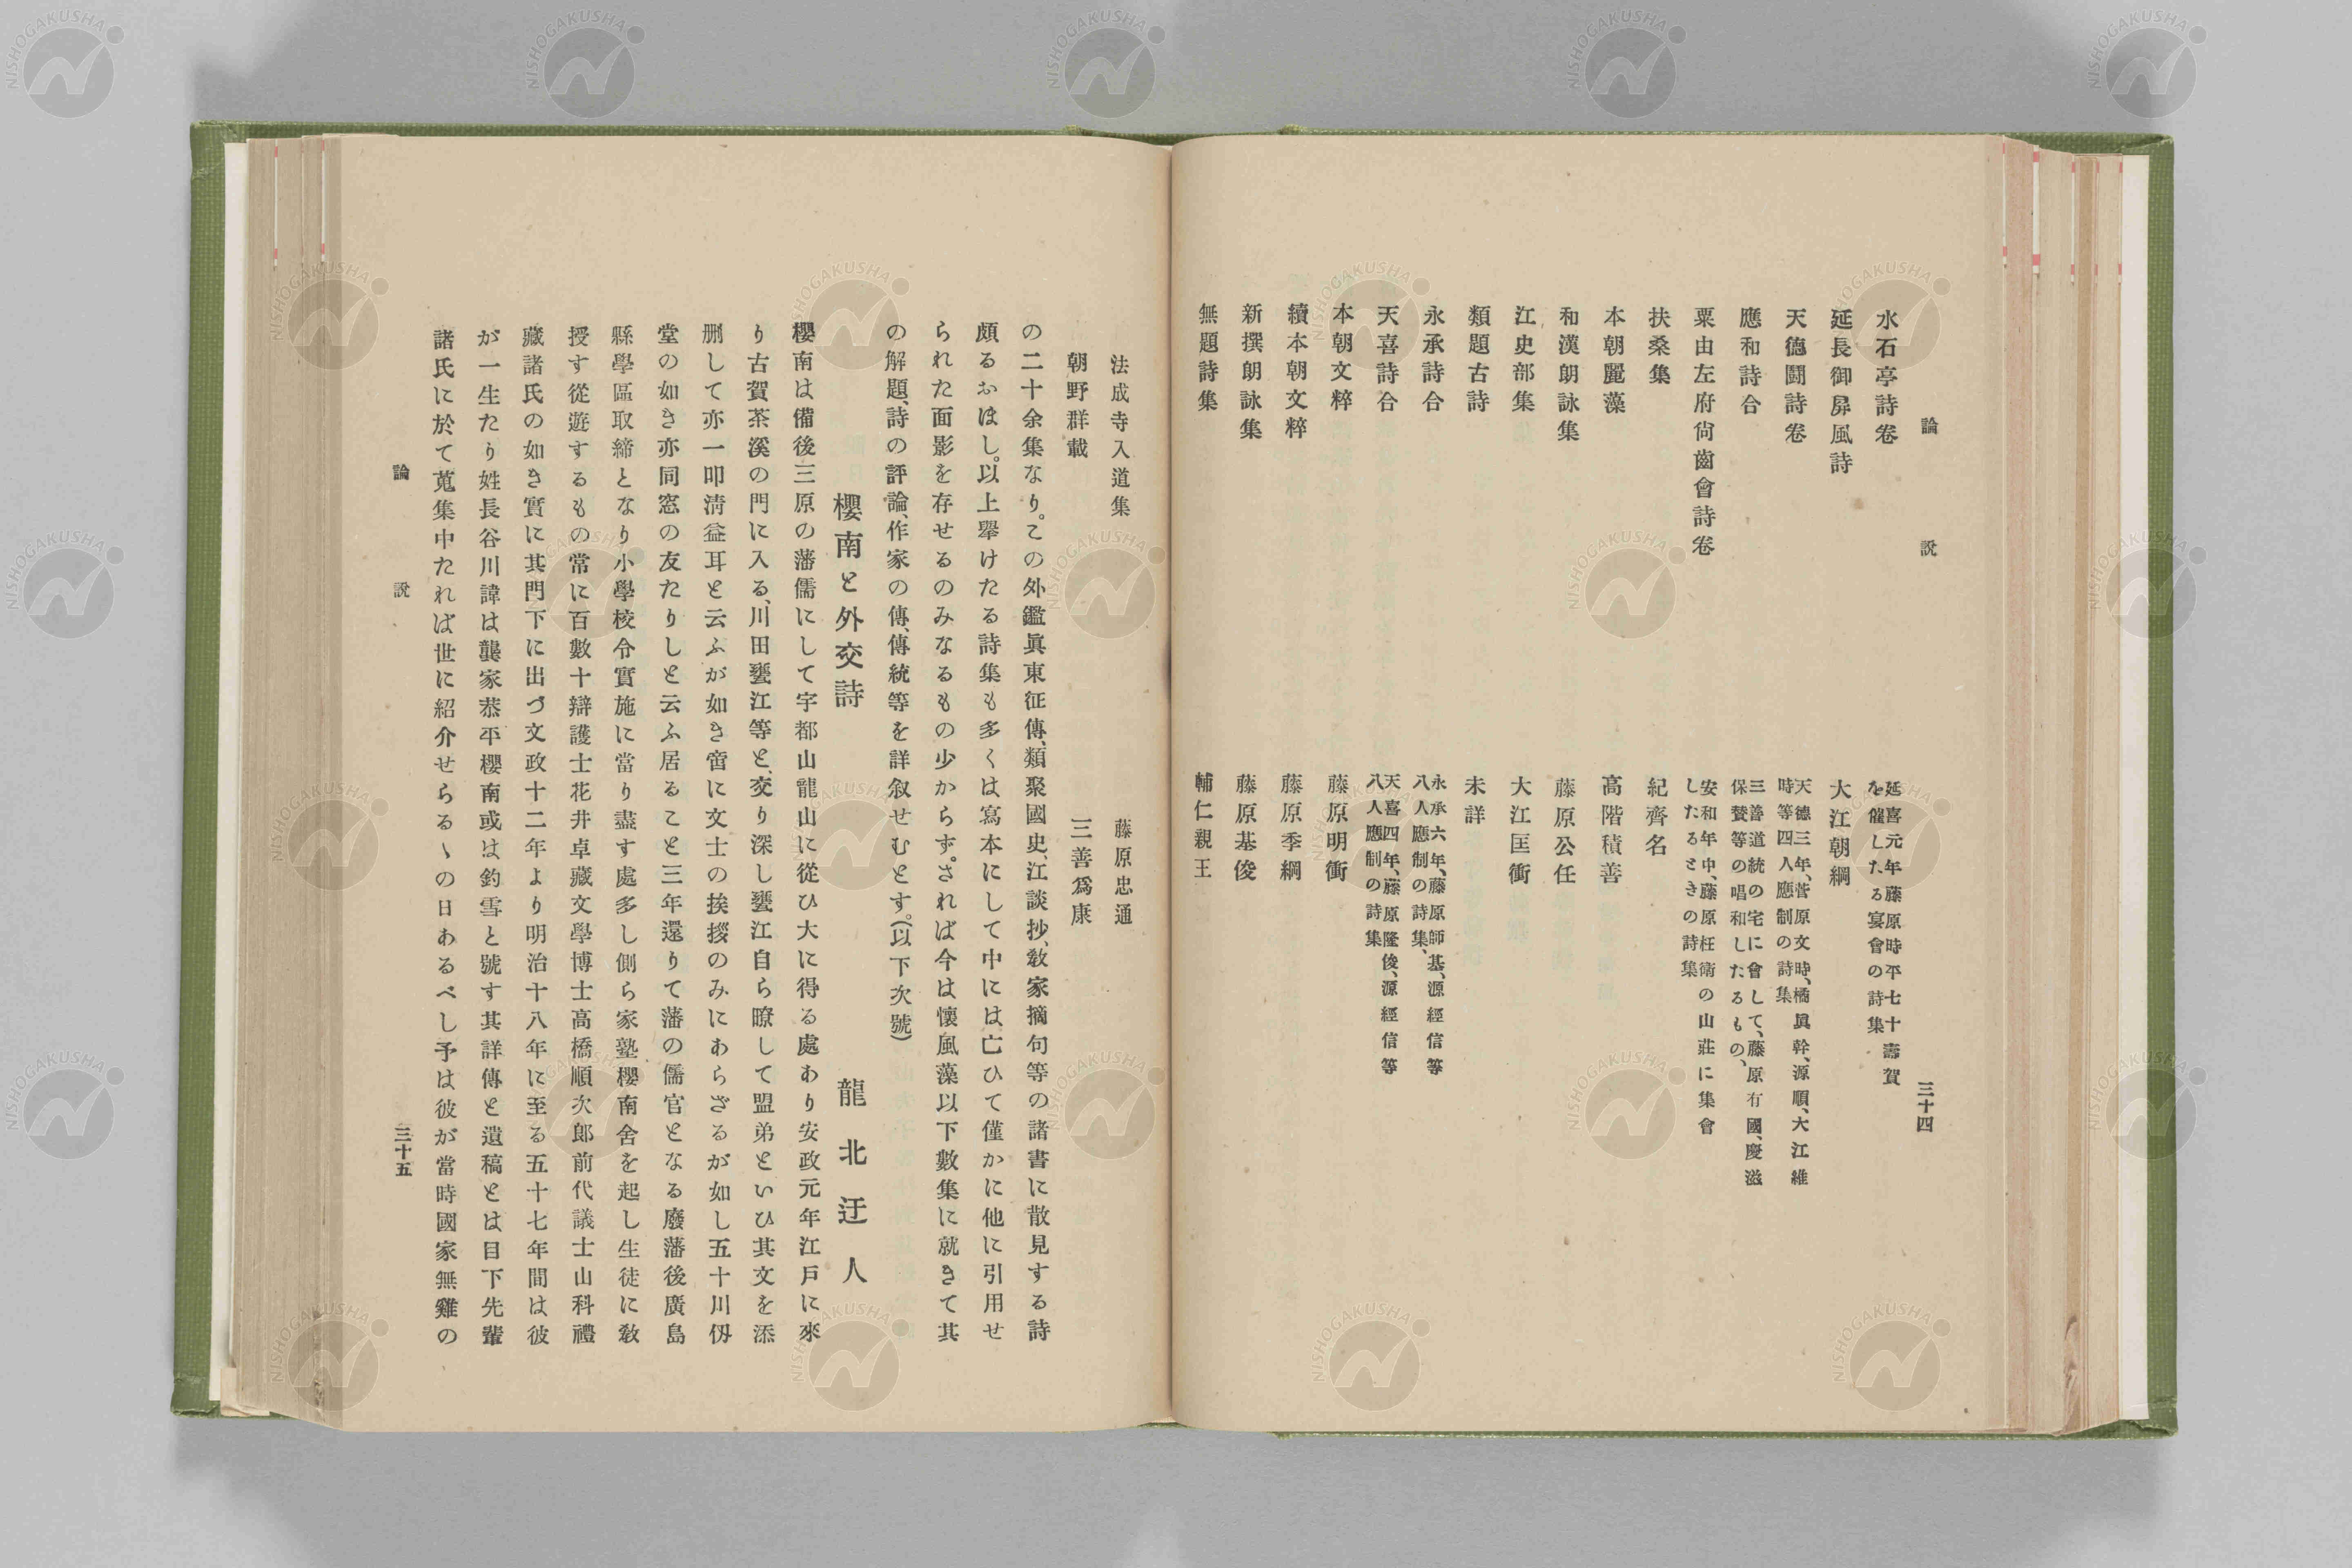 論說
三十四
水石亭詩卷
延喜元年藤原時平七十壽賀
を催したる宴會の詩集
延長御屛風詩
大江朝綱
天德鬪詩卷
天德三年、菅原文時、橘眞幹、源順、大江維
時等四人應制の詩集
應和詩合
三善道統の宅に會して、藤原有國、慶滋
保賛等の唱和したるもの、
粟由左府尙齒會詩卷
安和年中、藤原枉衛の山莊に集會
したるときの詩集
扶桑集
紀齊名
本朝麗藻
高階積善
和漢朗詠集
藤原公任
江史部集
大江匡衡
類題古詩
未詳
永承詩合
永承六年、藤原師基、源經信等
八人應制の詩集、
天喜詩合
天喜四年、藤原隆俊、源經信等
八人應制の詩集
本朝文粹
藤原明衝
續本朝文粹
藤原季綱
新撰朗詠集
藤原基俊
無題詩集
輔仁親王
法成寺入道集
藤原忠通
朝野群載
三善爲康
の二十余集なり。この外鑑眞東征傳、類聚國史、江談抄、敎家摘句等の諸書に散見する詩
頗るおほし。以上擧けたる詩集も多くは寫本にして中には亡ひて僅かに他に引用せ
られた面影を存せるのみなるもの少からず。されば今は懷風藻以下數集に就きて其
の解題、詩の評論、作家の傳、傳統等を詳叙せむとす。(以下次號)
櫻南と外交詩
龍北迂人
櫻南は備後三原の藩儒にして宇都山龍山に從ひ大に得る處あり安政元年江戶に來
り古賀茶溪の門に入る、川田甕江等と、交り深し甕江自ら瞭して盟弟といひ其文を添
删して亦一叩淸益耳と云ふが如き啻に文士の挨拶のみにあらざるが如し五十川仭
堂の如き亦同窓の友たりしと云ふ居ること三年還りて藩の儒官となる廢藩後廣島
縣學區取締となり小學校令實施に當り盡す處多し側ら家塾櫻南舍を起し生徒に敎
授す從遊するもの常に百數十辯護士花井卓藏文學博士高橋順次郎前代議士山科禮
藏諸氏の如き實に其門下に出づ文政十二年より明治十八年に至る五十七年間は彼
が一生たり姓長谷川諱は龔家恭平櫻南或は釣雪と號す其詳傳と遺稿とは目下先輩
諸氏に於て蒐集中たれば世に紹介せらるゝの日あるべし予は彼が當時國家無難の
論說
三十五